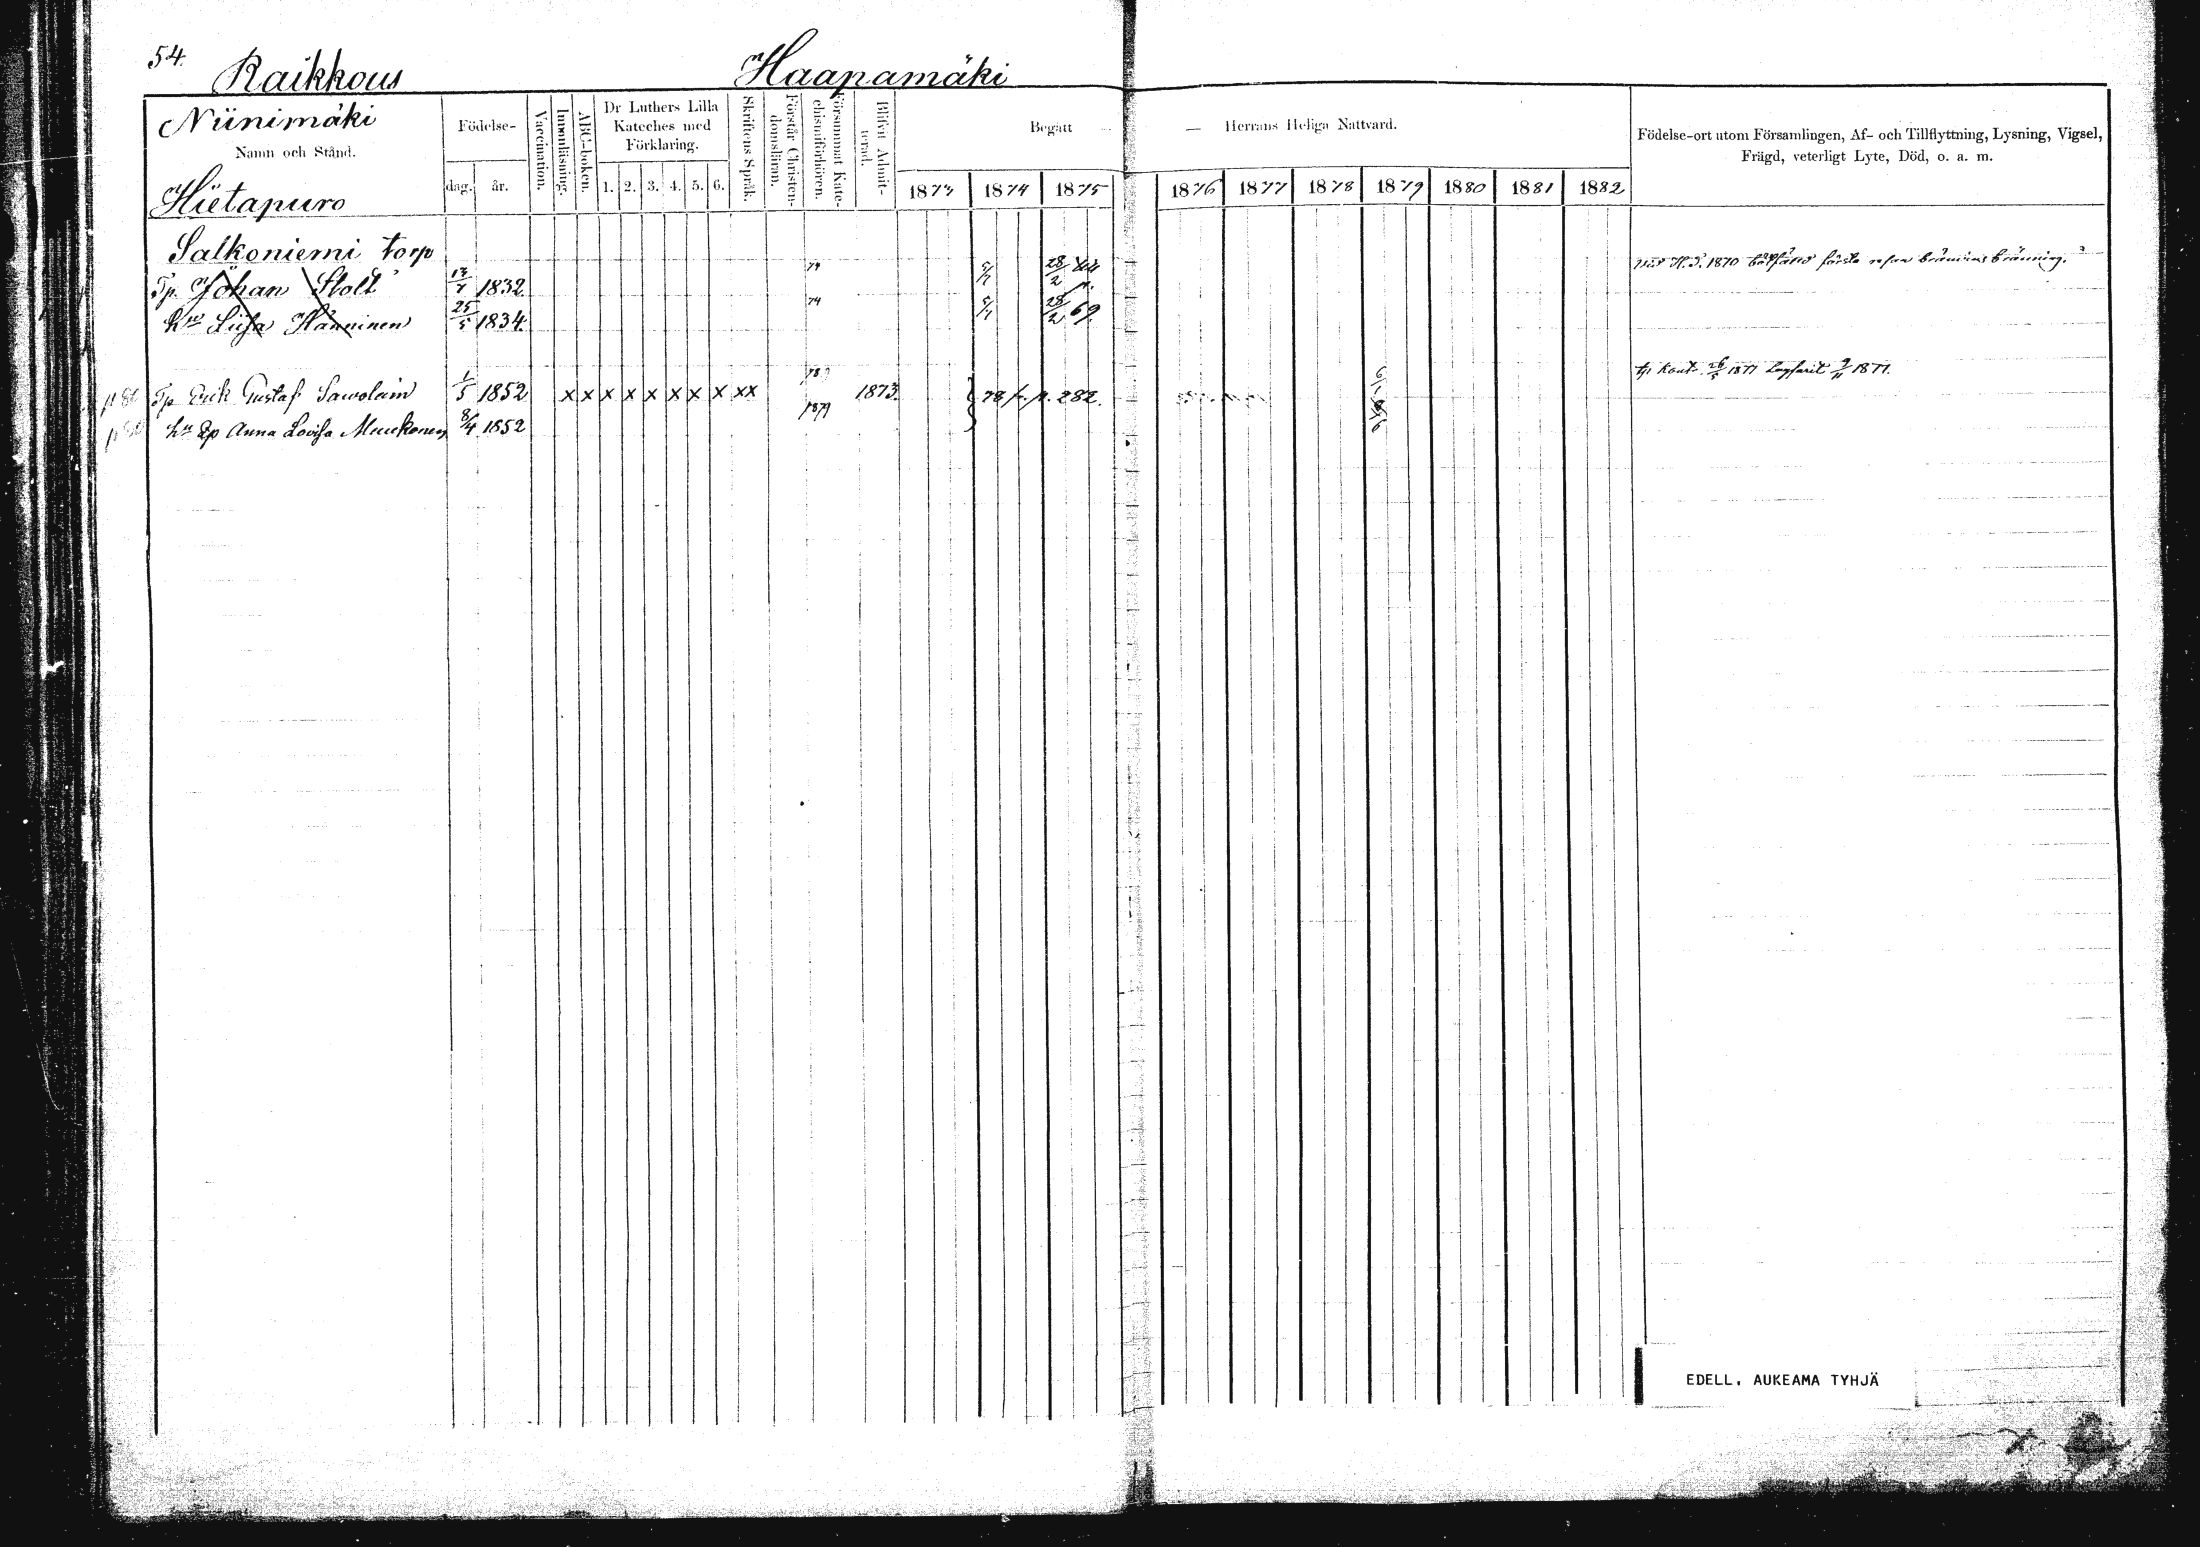 54.
Raikkous Haapamäki
Niinimäki
Namn och Stånd.
Hietapuro
Födelse-
dag. år.
Vaccination.
Innanläsning.
ABC-boken.
Dr Luthers Lilla
Kateches med
Förklaring.
1. 2. 3. 4. 5. 6.
Skriftens Språk.
Förstår Christen-
domsläran.
Försummat Kate-
chismiförhören.
Blifvit Admit-
terad.
Begått — Herrans Heliga Nattvard.
1873 1874 1875 1876 1877 1878 1879 1880 1881 1882
Födelse-ort utom Församlingen, Af- och Tillflyttning, Lysning, Vigsel,
Frägd, veterligt Lyte, Död, o. a. m.
Salkoniemi torp
Tp. Johan Stolt 13/7 1832. 74 28/2
hu Liisa Hänninen 25/5 1834. 74 28/2 69.
Tp Erik Gustaf Sawolain 1/5 1852 x x x x x x x x xx 1873. 78 p. 282.
26/5 1877 9/11 1877.
hu Ep Anna Lovisa Muukonen 8/4 1852 1879
EDELL. AUKEAMA TYHJÄ